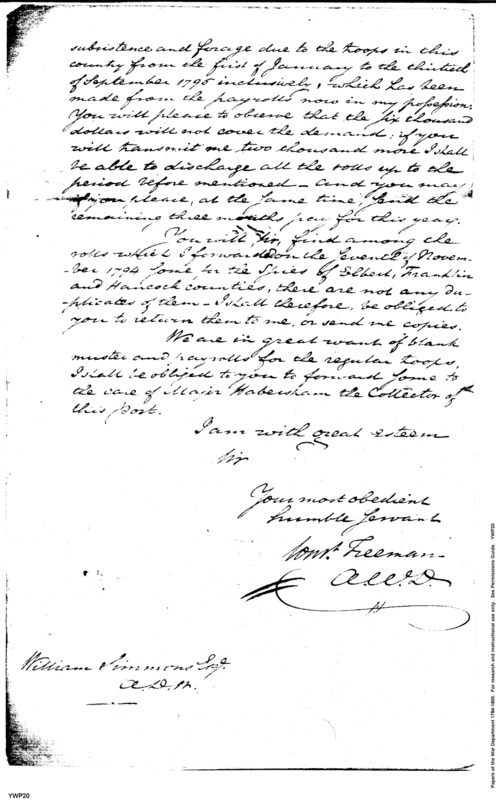 subsistence and forage due to the troops in this
county from the first of January to the thirtieth
of September 1795 inclusively, which has been
made from the payrolls now in my possession.
You will please to observe that the six thousand
dollars will not cover the demand; if you
will transmit me two thousand more I shall
be able to discharge all the rolls up to the
period before mentioned - and you may
if you please, at the same time, send the
remaining three months pay for this year.
You will, Sir, find among the
rolls which I forwarded on the Seventh of Novem-
-ber 1794 some for the Spies of Elbert, Franklin
and Hancock counties, there are not any du-
-plicates of them - I shall therefore, be obliged to
you to return them to me, or send me copies.
We are in great want of blank
muster and payrolls for the regular troops,
I shall be obliged to you to forward some to
the care of Major Habersham the Collector of
this port.
I am with great esteem
Sir
Your most obedient
humble Servant
Const. Freeman
A.W.D.
William Simmons Esqr.
A.D.W.
YWP20
Papers of the War Department 1784-1800. For research and instructional use only. See Permissions Guide. YWP20